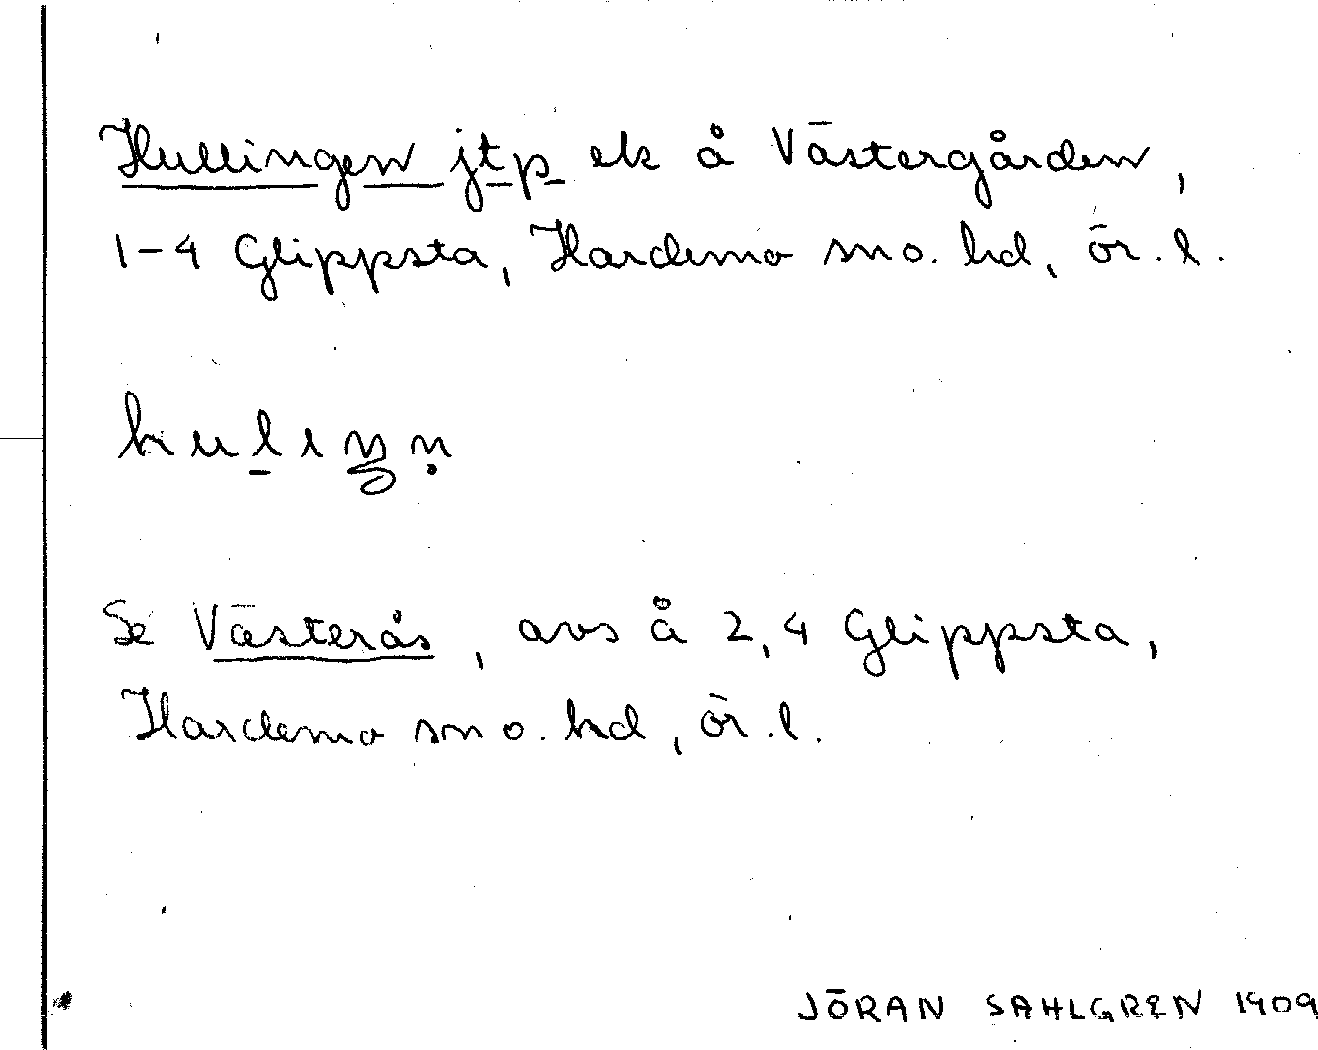 Hullingen jtp ek å Västergården,
1-4 Glippsta, Hardemo sn o. hd, ör. l.
hulıŋn̥
Se Västerås, avs å 2,4 Glippsta,
Hardemo sn o. hd, ör. l.
JÖRAN SAHLGREN 1909